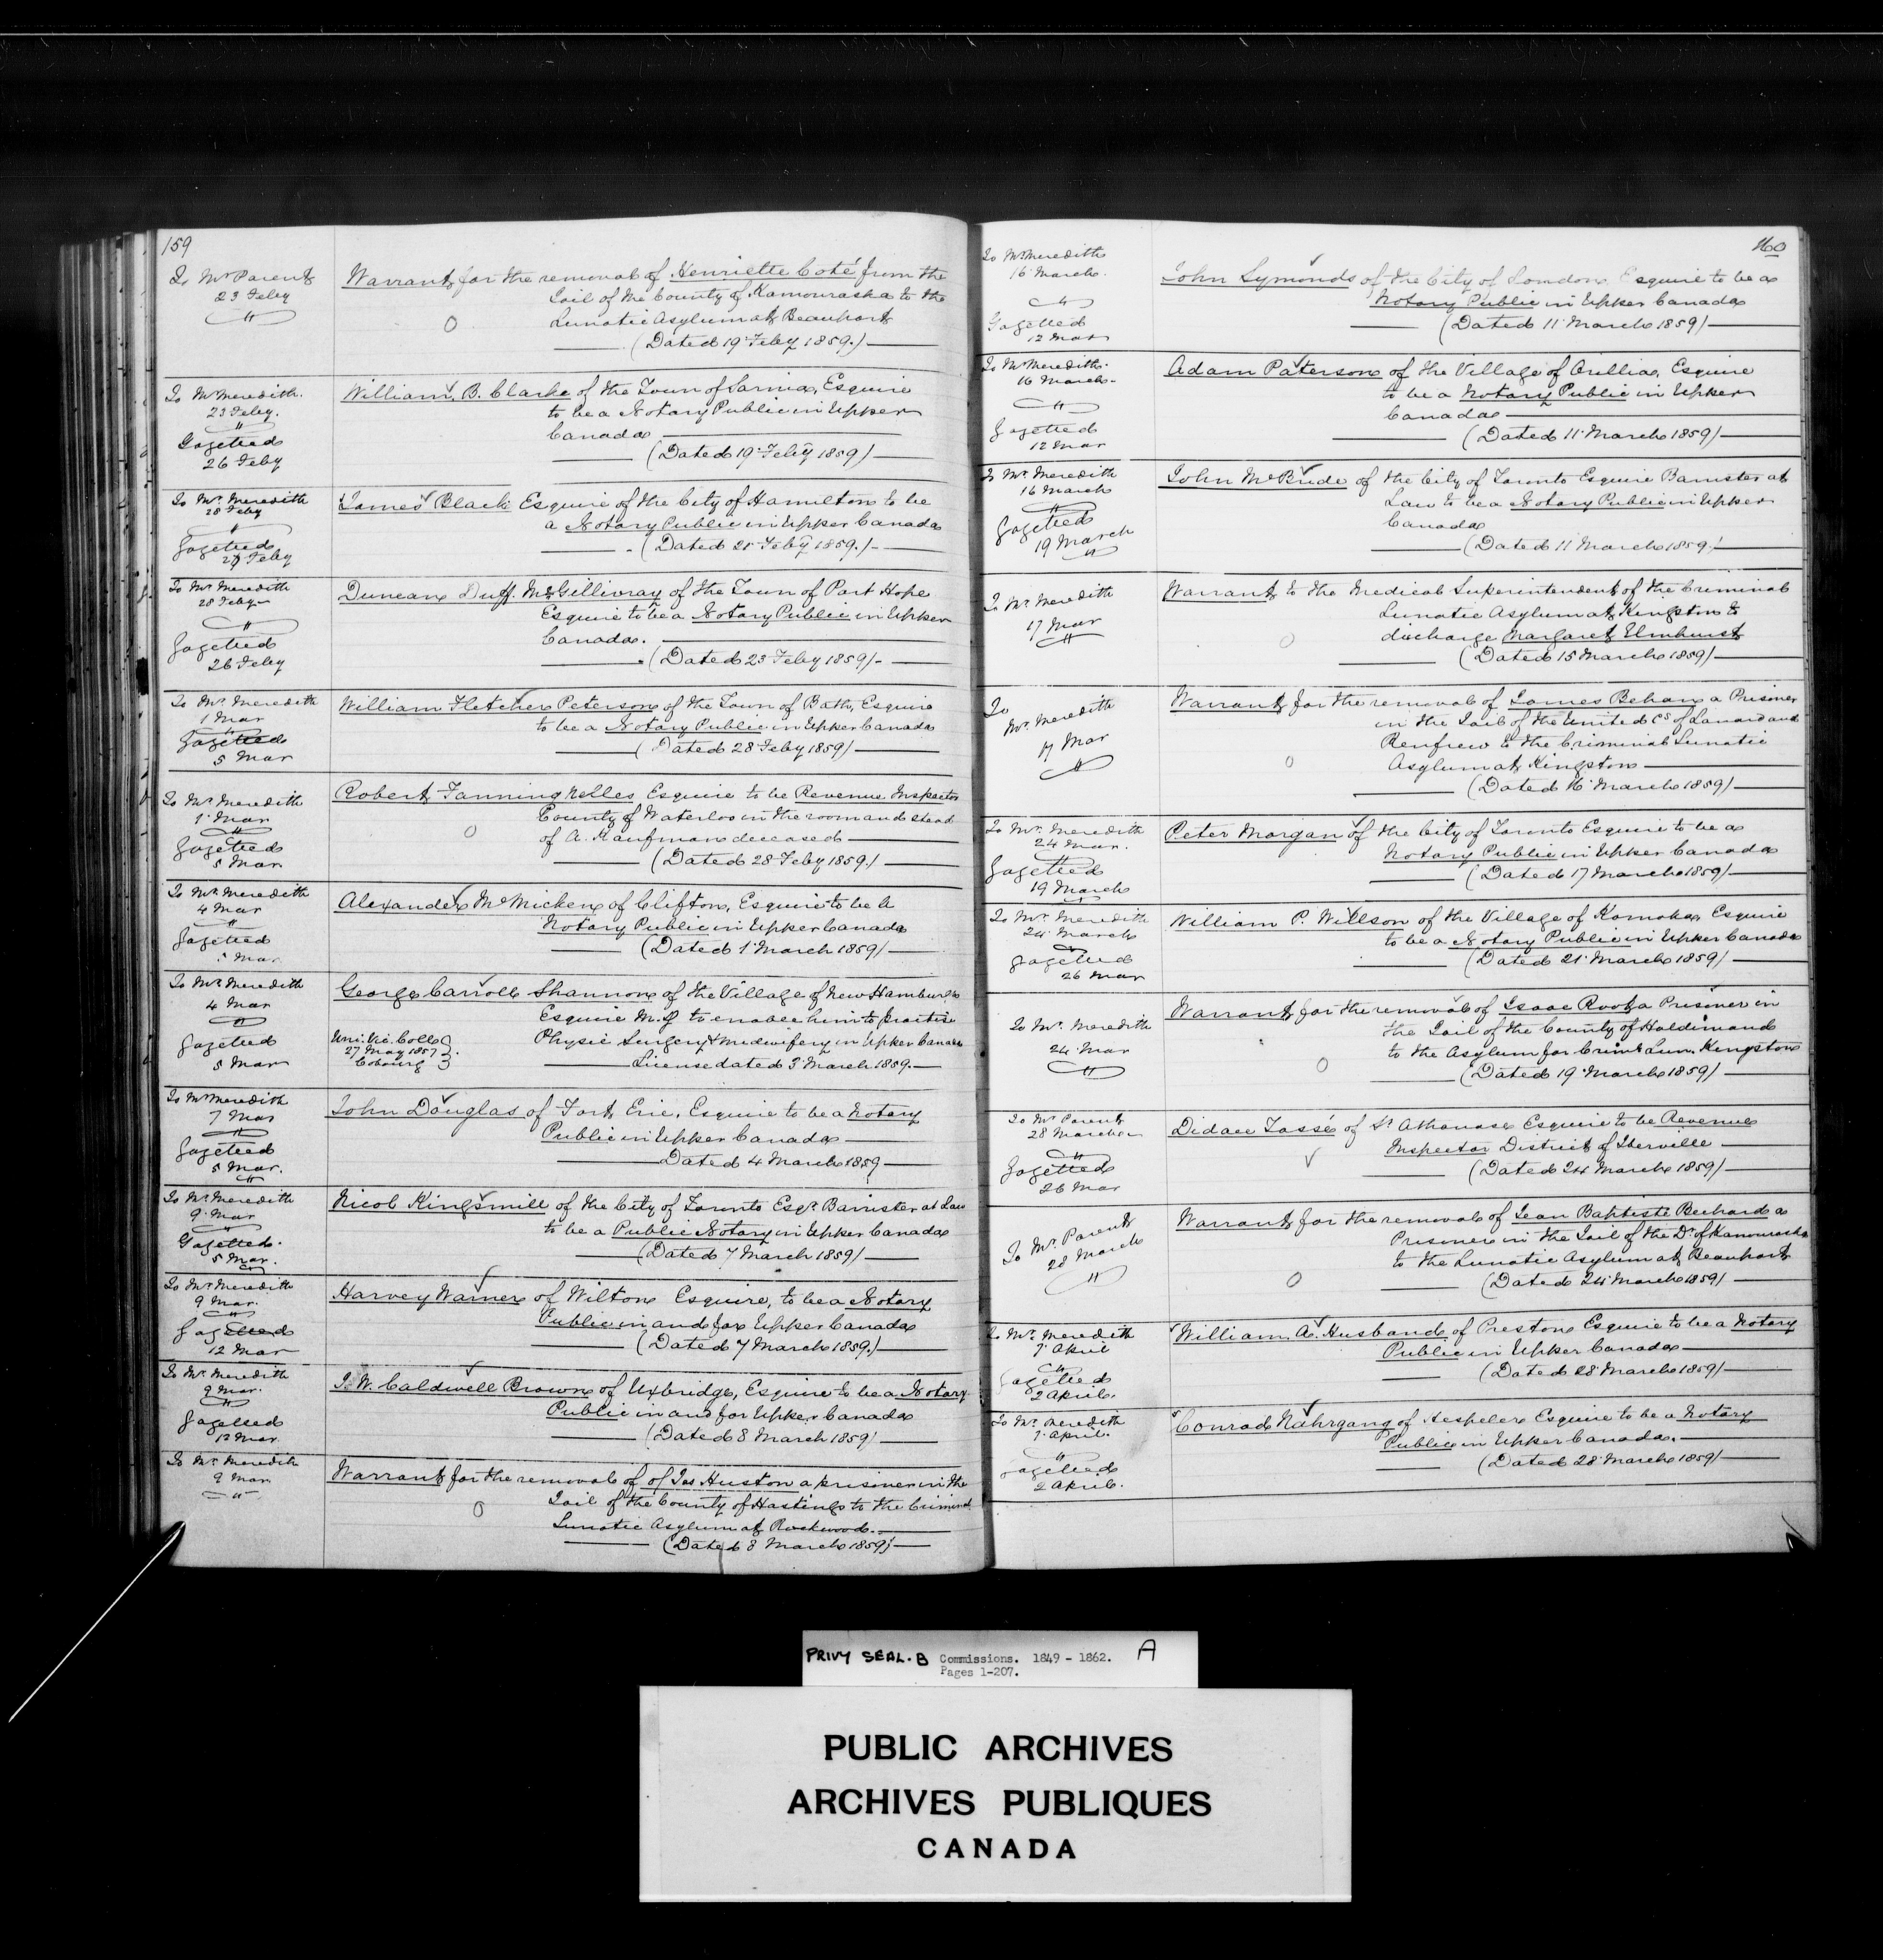 159
To Mr Parent
23 Feby
"
Warrant for the removal of Henriette Coté from the
Jail of the County of Kamouraska to the
Lunatic Asylum at Beauport
(Dated 19 Feby 1859.)
To Mr Meredith.
23 Feby.
"
Gazetted
26 Feby
William B. Clarke of the Town of Sarnia, Esquire
to be a Notary Public in Upper
Canada
(Dated 19 Feby 1859)
To Mr. Meredith
28 Feby
"
Gazetted
Feby
James Black Esquire of the City of Hamilton to be
a Notary Public in Upper Canada
(Dated Feby 1859.)
To Mr. Meredith
28 Feby
"
Gazetted
26 Feby
Duncan Duff McGillivray of the Town of Port Hope
Esquire to be a Notary Public in Upper
Canada.
(Dated 23 Feby 1859)
To Mr. Meredith
1 Mar
"
Gazetted
5 Mar
William Fletcher Peterson of the Town of Bath, Esquire
to be a Notary Public in Upper Canada
(Dated 28 Feby 1859)
To Mr. Meredith
1 Mar
"
Gazetted
5 Mar
Robert Fanning Nelles Esquire to be Revenue Inspector
County of Waterloo in the room and stead
of A. Kaufman deceased
(Dated 28 Feby 1859.)
To Mr. Meredith
4 Mar
"
Gazetted
5 Mar
Alexander McMicken of Clifton, Esquire to be a
Notary Public in Upper Canada
(Dated 1 March 1859)
To Mr. Meredith
4 Mar
"
Gazetted
5 Mar
George Carroll Shannon of the Village of New Hamburg
Esquire M.D. to enable him to practise
Uni. Vic. Coll.
27 May 1857
Cobourg
Physic Surgery & Midwifery in Upper Canada
License dated 3 March 1859.
To Mr Meredith
7 Mar
"
Gazetted
5 Mar.
John Douglas of Fort Erie, Esquire to be a Notary
Public in Upper Canada
Dated 4 March 1859
To Mr. Meredith
9 Mar
"
Gazetted.
5 Mar.
Nicol Kingsmill of the City of Toronto Esqr. Barrister at Law
to be a Public Notary in Upper Canada
(Dated 7 March 1859)
To Mr Meredith
9 Mar.
"
Gazetted
12 Mar
Harvey Warner of Wilton Esquire, to be a Notary
Public in and for Upper Canada
(Dated 7 March 1859.)
To Mr. Meredith
9 Mar.
"
Gazetted
12 Mar.
J. W. Caldwell Brown of Uxbridge, Esquire to be a Notary
Public in and for Upper Canada
(Dated 8 March 1859)
To Mr. Meredith
9 Mar
"
Warrant for the removal of of Jas Huston a prisoner in the
Jail of the County of Hastings to the Criminal
Lunatic Asylum at Rockwood.
(Dated 8 March 1859)
160
To Mr Meredith
16 March.
"
Gazetted
12 Mar
John Symonds of the City of London Esquire to be a
Notary Public in Upper Canada
(Dated 11 March 1859)
To Mr Meredith.
16 March
"
Gazetted
12 Mar
Adam Paterson of the Village of Orillia, Esquire
to be a Notary Public in Upper
Canada
(Dated 11 March 1859)
To Mr. Meredith
16 March
"
Gazetted
19 March
"
John McBride of the City of Toronto Esquire Barrister at
Law to be a Notary Public in Upper
Canada
(Dated 11 March 1859)
To Mr. Meredith
17 Mar
"
Warrant to the Medical Superintendent of the Criminal
Lunatic Asylum at Kingston to
discharge Margaret Elmhurst
(Dated 15 March 1859)
To
Mr. Meredith
17 Mar
"
Warrant for the removal of James Behan a Prisoner
in the Jail of the United Cs of Lanark and
Renfrew to the Criminal Lunatic
Asylum at Kingston
(Dated 16 March 1859)
To Mr. Meredith
24 Mar.
Gazetted
19 March
Peter Morgan of the City of Toronto Esquire to be a
Notary Public in Upper Canada
(Dated 17 March 1859)
To Mr. Meredith
24 March
Gazetted
26 Mar
William P. Willson of the Village of Komoka Esquire
to be a Notary Public in Upper Canada
(Dated 21 March 1859)
To Mr. Meredith
24 Mar
"
Warrant for the removal of Isaac Root a Prisoner in
the Jail of the County of Haldimand
to the Asylum for Criml Lun. Kingston
(Dated 19 March 1859)
To Mr Parent
28 March
"
Gazetted
26 Mar
Didace Tassé of St Athanase Esquire to be Revenue
Inspector District of Iberville
(Dated 24 March 1859)
To Mr. Parent
28 March
"
Warrant for the removal of Jean Baptiste Bechard a
Prisoner in the Jail of the D. of Kamouraska
to the Lunatic Asylum at Beauport
(Dated 24 March 1859)
To Mr. Meredith
7 April
"
Gazetted
2 April.
William A. Husband of Preston Esquire to be a Notary
Public in Upper Canada
(Dated 28 March 1859)
To Mr. Meredith
7 April.
"
Gazetted
2 April.
Conrad Nahrgang of Hespeler Esquire to be a Notary
Public in Upper Canada.
(Dated 28 March 1859)
PRIVY SEAL. B Commissions. 1849 - 1862. A
Pages 1-207.
PUBLIC ARCHIVES
ARCHIVES PUBLIQUES
CANADA